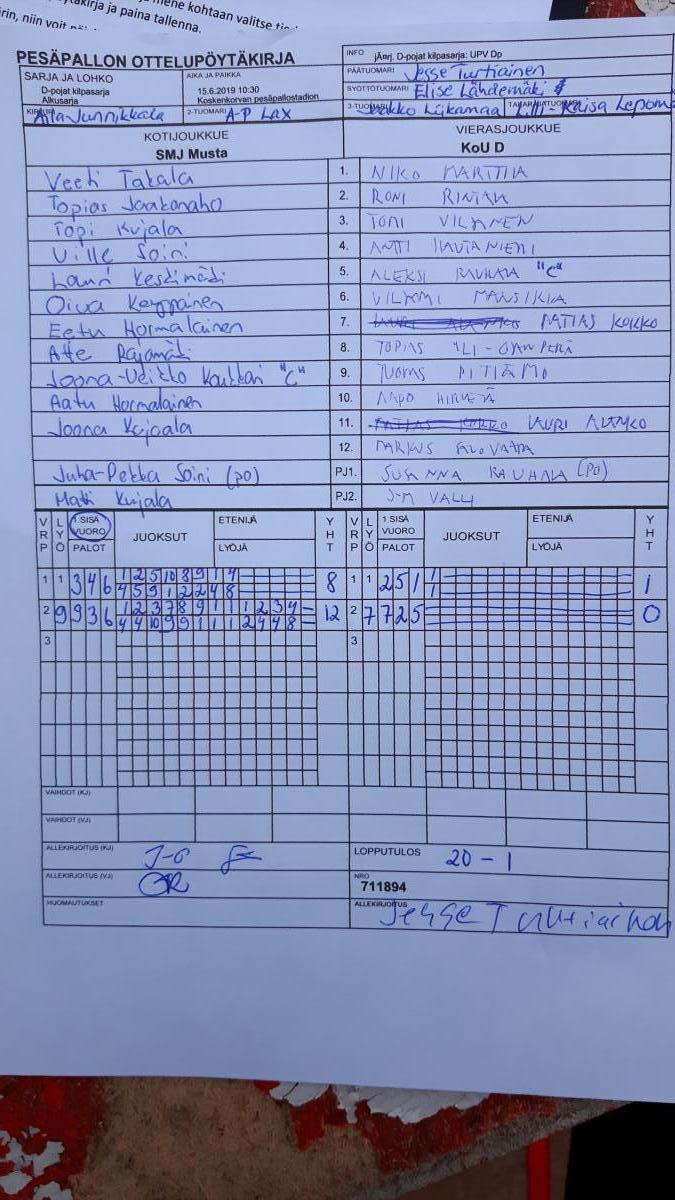 kirja ja paina tallenna.
PESÄPALLON OTTELUPÖYTÄKIRJA
INFO jÄnrj. D-pojat kilpasarja: UPV Dp
SARJA JA LOHKO
D-pojat kilpasarja
Alkusarja
AIKA JA PAIKKA
15.6.2019 10:30
Koskenkorvan pesäpallostadion
PÄÄTUOMARI Jesse Turtiainen
SYÖTTÖTUOMARI Elise Lähdemäki
2-TUOMARI A-P Lax
3-TUOMARI Jaakko Liikamaa
KOTIJOUKKUE
SMJ Musta
VIERASJOUKKUE
KoU D
Veeti Takala 1. NIKO MARTTILA
Topias Jaakonaho 2. RONI
Topi Kujala 3. TONI VILJANEN
Ville Soini 4. ANTTI HAUTANIEMI
Lauri Keskimäki 5. ALEKSI RAUHALA "C"
Oiva Keyppainen 6. VILJAMI MANSIKKA
Eetu Hormalainen 7. MATIAS KORKKO
Atte Rajamäki 8. TOPIAS YLI-
Joona- "C" 9. TUOMAS
Aatu Hormalainen 10. AAPO
Joona Kujala 11. LAURI
12. MARKUS
Juha-Pekka Soini (po) PJ1. SUSANNA RAUHALA (PO)
Matti Kujala PJ2. J-M VALLI
VRP LYÖ 1.SISÄ VUORO PALOT JUOKSUT ETENIJÄ LYÖJÄ YHT VRP LYÖ 1.SISÄ VUORO PALOT JUOKSUT ETENIJÄ LYÖJÄ YHT
1 1 3 4 6 1 2 5 10 8 9 1 4 8 1 1 2 5 1 1 1
4 5 9 1 2 2 4 8 1
2 9 9 3 6 1 2 3 7 8 9 1 1 1 2 3 4 12 2 7 7 2 5 0
4 4 10 9 9 1 1 1 2 4 4 8
3 3
VAIHDOT (KJ)
VAIHDOT (VJ)
ALLEKIRJOITUS (KJ) LOPPUTULOS 20 - 1
ALLEKIRJOITUS (VJ) NRO
711894
HUOMAUTUKSET ALLEKIRJOITUS Jesse Turtiainen